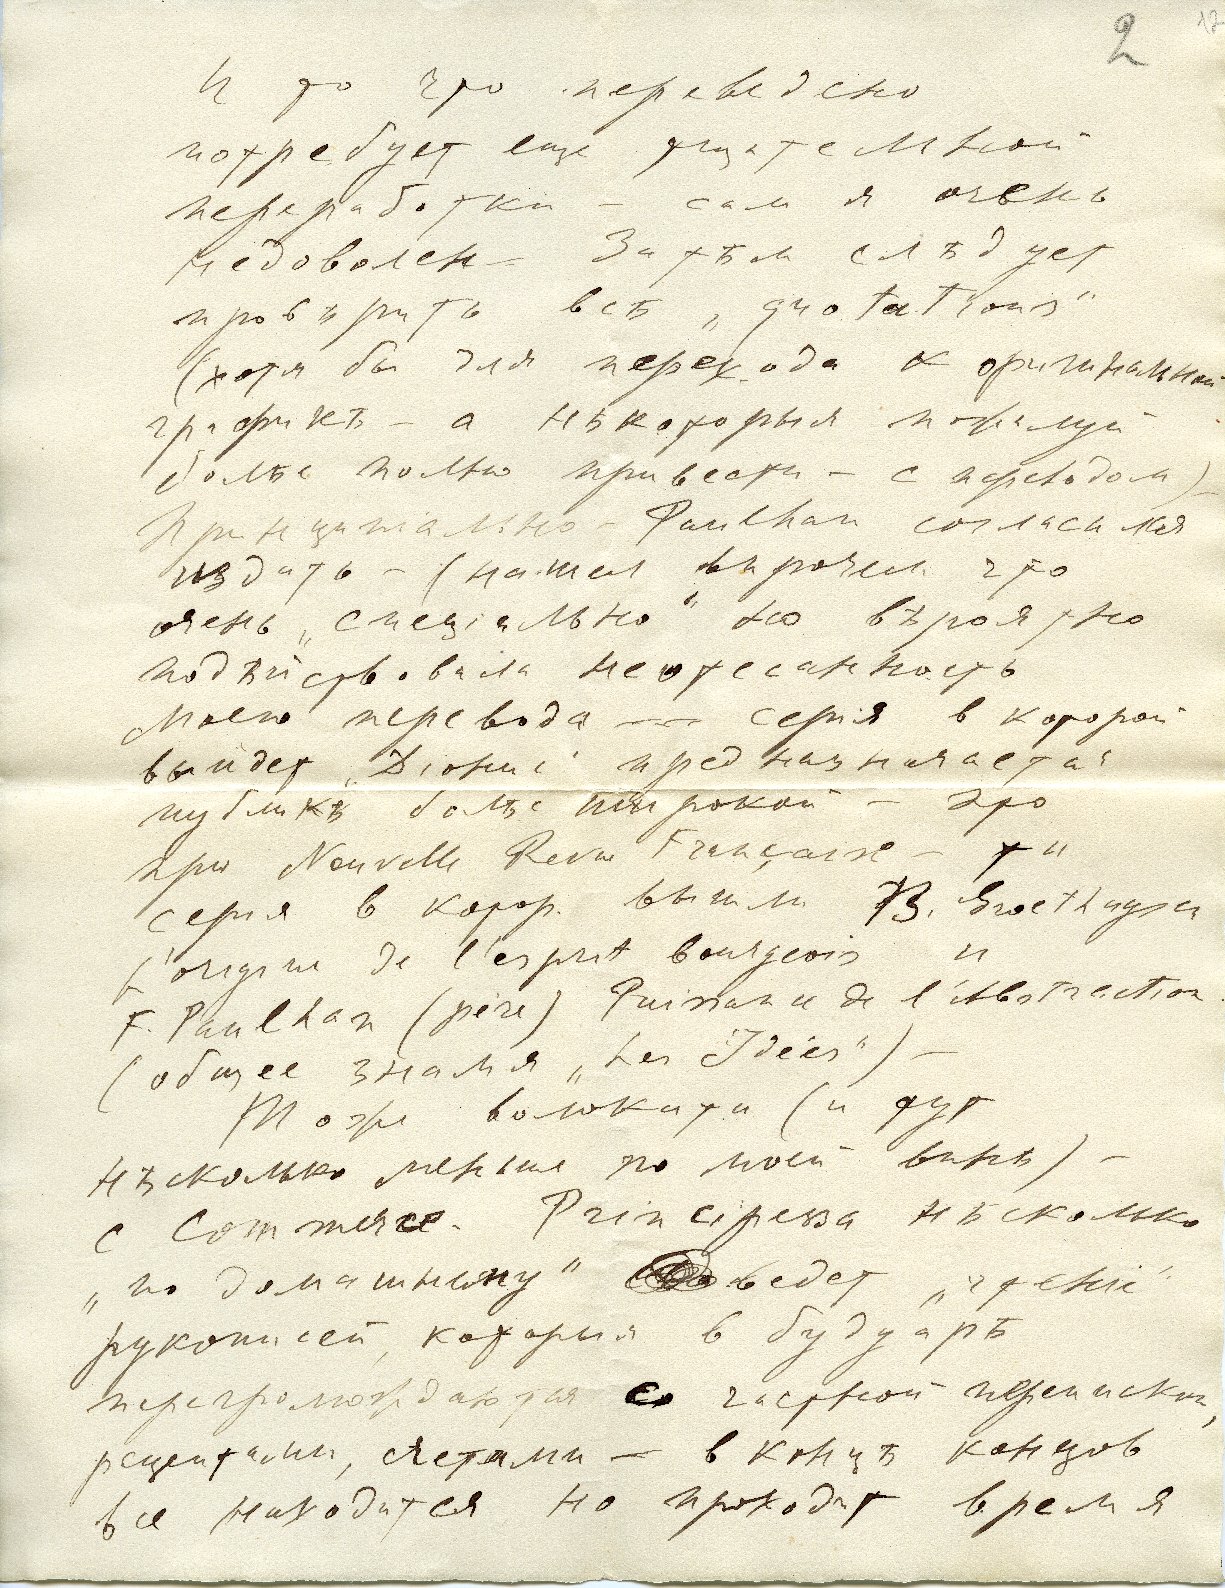 2
12
И то что переведено
потребует еще тщательной
переработки – сам я очень
недоволен – Затѣм слѣдует
провѣрить всѣ „quotations“
(хотя бы для перехода к оригинальной
графикѣ – а нѣкоторыя пожалуй
болѣе полно привести – с переводом) –
Принципиально – Paulhan согласился
издать – (нашел впрочем что
очень „спеціально“ но вѣроятно
подѣйствовала неотесанность
моего перевода — серія в которой
выйдет „Діонис“ предназначается
публикѣ болѣе широкой – это
при Nouvelle Revue Française – та
серія в котор. вышли B. Groethuysen
L'origine de l'esprit bourgeois и
F. Paulhan (père) Puissance de l'abstraction.
(общее знамя „Les Idées“) –
Тоже волокита (и тут
нѣсколько меньше по моей винѣ) –
с Commerce. Principessa нѣсколько
„по домашнему“ ведет „чтеніе“
рукописей, которыя в будуарѣ
перегромождаются со частной перепиской,
рецептами, счетами – в концѣ концов
все находится но проходит время